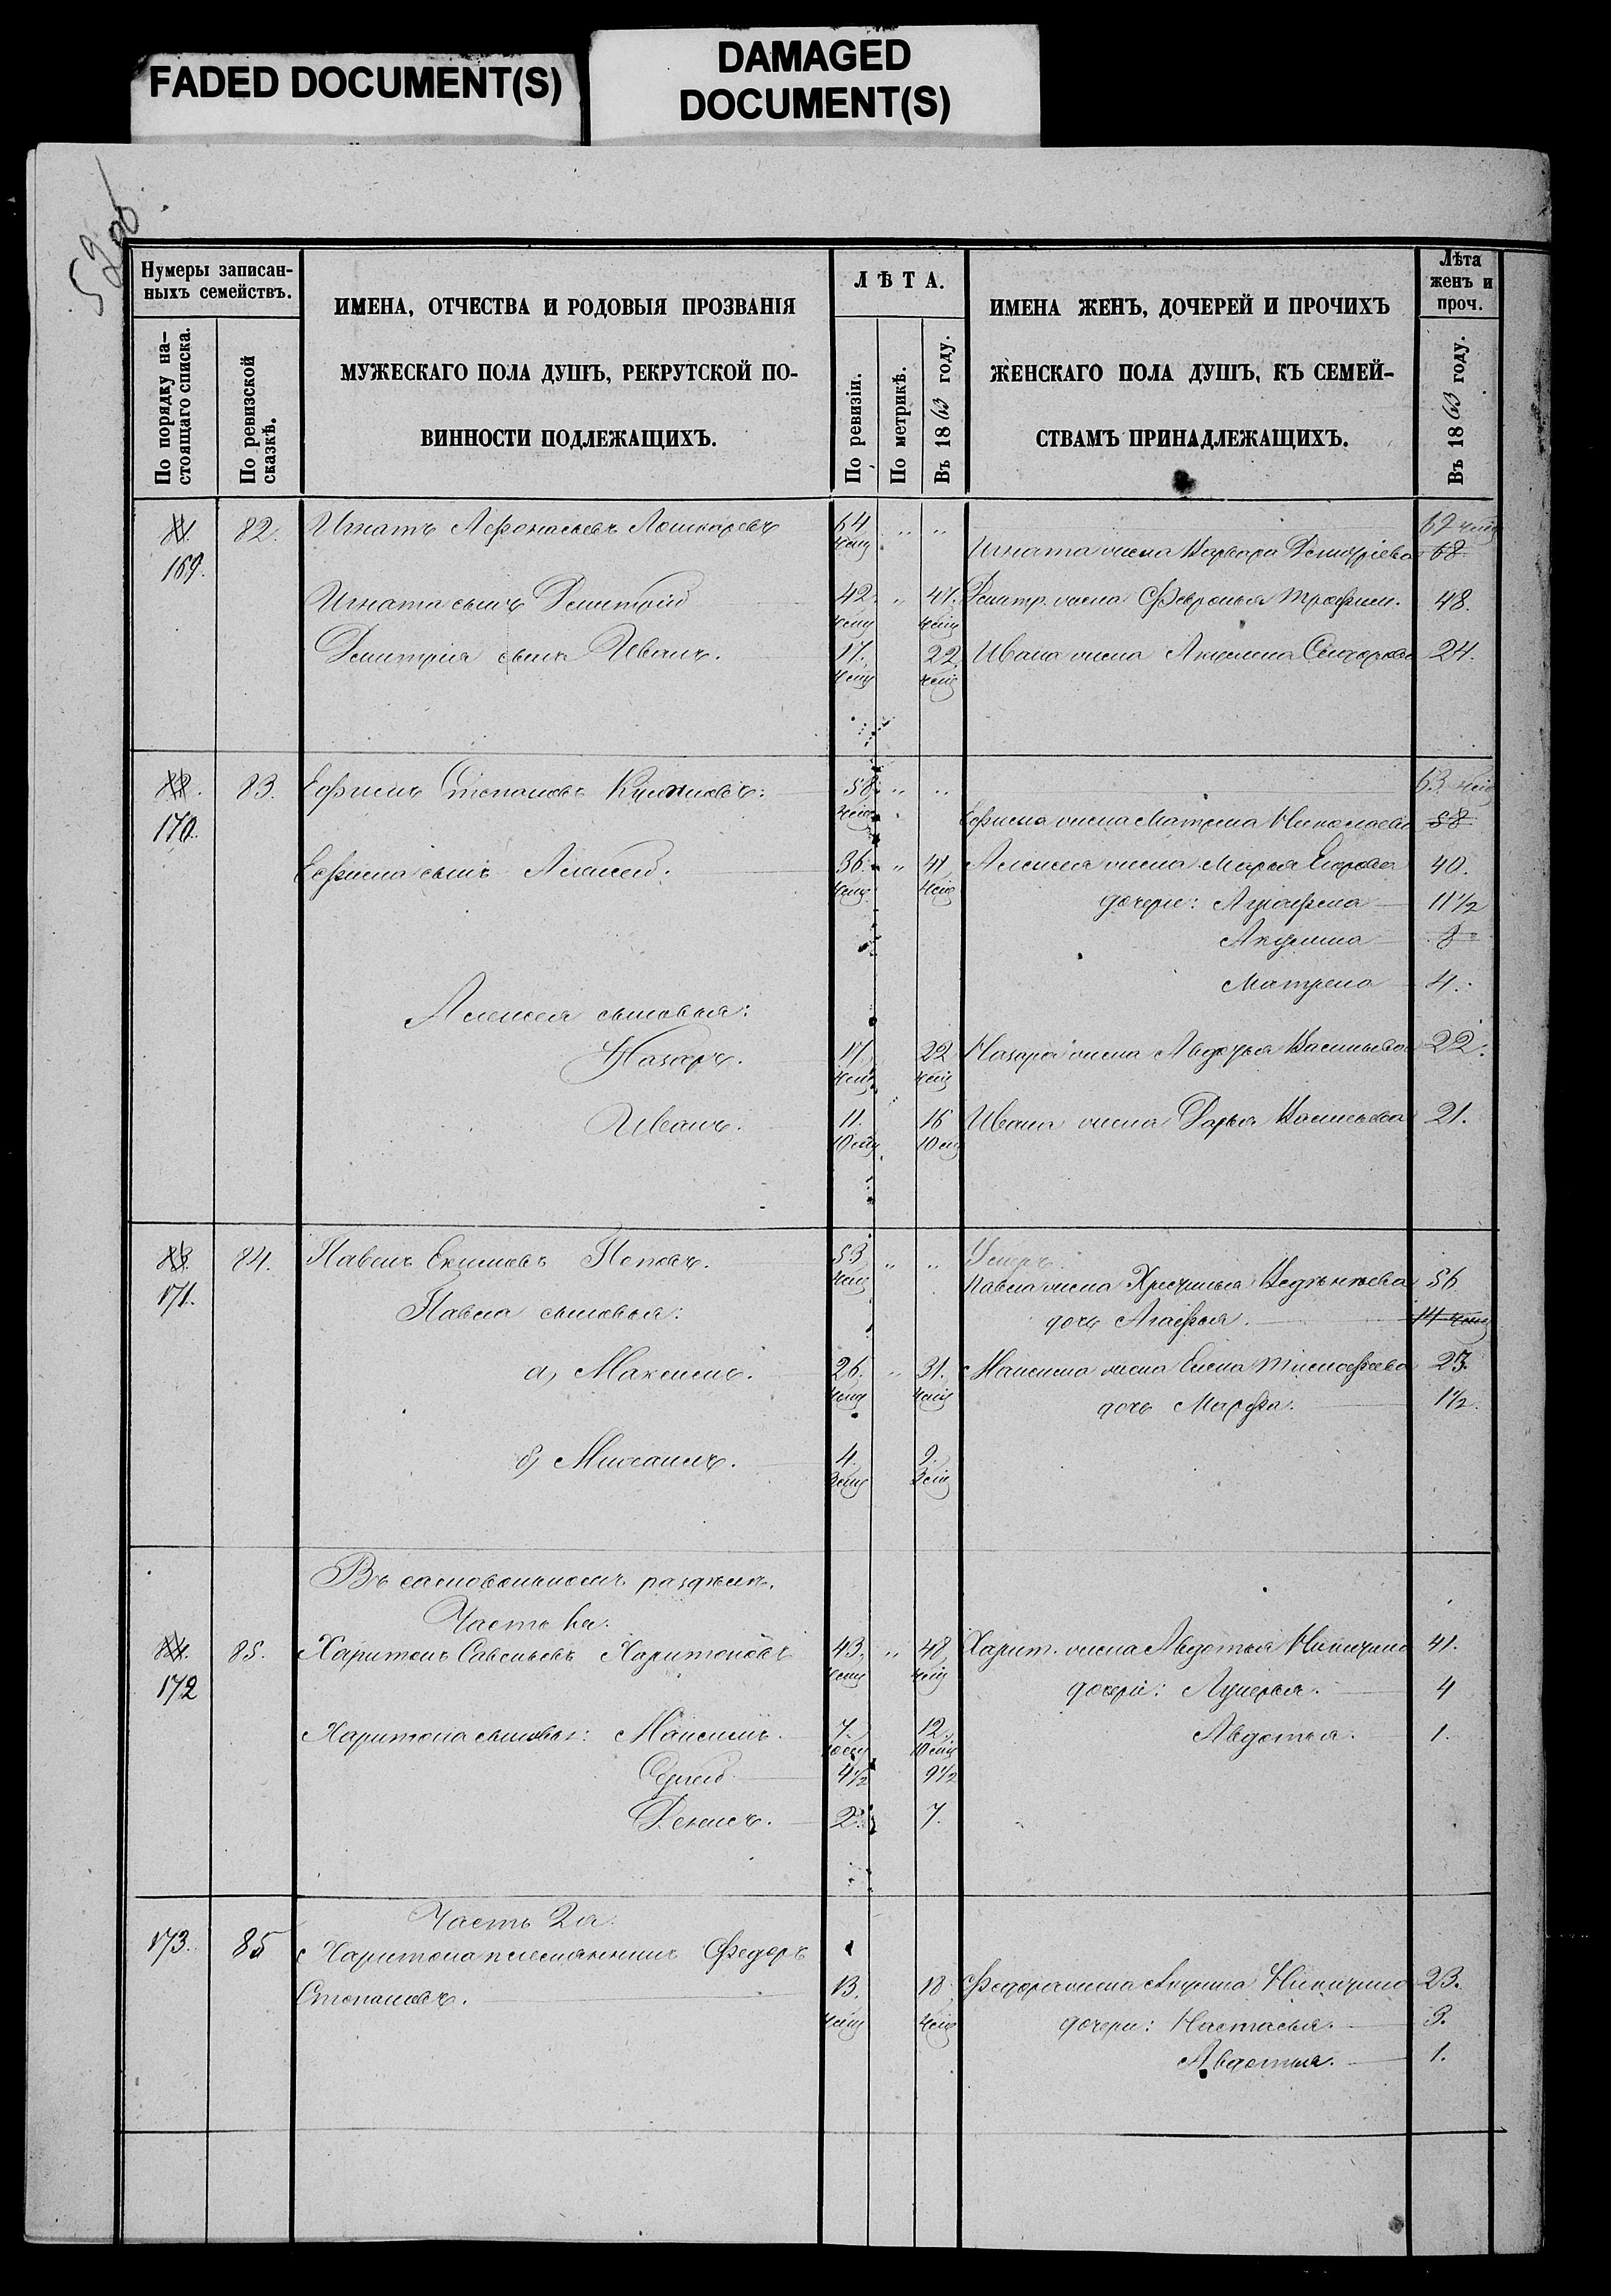 FADED DOCUMENT(S)
DAMAGED
DOCUMENT(S)
52 об
Нумеры записан-
ныхъ семействъ.
По порядку на-
стоящаго списка.
По ревизской
сказкѣ.
ИМЕНА, ОТЧЕСТВА И РОДОВЫЯ ПРОЗВАНІЯ
МУЖЕСКАГО ПОЛА ДУШЪ, РЕКРУТСКОЙ ПО-
ВИННОСТИ ПОДЛЕЖАЩИХЪ.
ЛѢТА.
По ревизіи.
По метрикѣ.
Въ 1863 году.
ИМЕНА ЖЕНЪ, ДОЧЕРЕЙ И ПРОЧИХЪ
ЖЕНСКАГО ПОЛА ДУШЪ, КЪ СЕМЕЙ-
СТВАМЪ ПРИНАДЛЕЖАЩИХЪ.
Лѣта
женъ и
проч.
Въ 1863 году.
81. 82. Игнатъ Афонасьевъ 64 " "
169. Игната жена Варвара Дмитріева 68
Игната сынъ Дмитрій 42. " 47. Дмитр. жена Февронья Трофим. 48.
Дмитрія сынъ Иванъ. 17. 22 Ивана жена Акулина 24.
82. 83. Ефимъ Степановъ 58. " " 63
170. Ефима жена Матрена Николаева 58
Ефима сынъ Алексей. 36. " 41 Алексея жена Марья Егорова 40.
дочери: Аграфена 11 1/2
Акулина 8
Матрена 4.
Алексея сыновья:
Назаръ. 17 22 Назара жена Авдотья Васильева 22.
Иванъ. 11. 16 Ивана жена Дарья Васильева 21.
83. 84. Павелъ Екимовъ Поповъ. 53 " "
171. Павла жена 56
Павла сыновья: дочь Агафья. 14
а, Максимъ. 26. " 31. Максима жена Елена Тимофеева 23.
дочь Марфа. 1 1/2.
б, Михаилъ. 4. 9.
Въ самовольномъ разделе.
Часть 1я.
84. 85. Харитонъ Савельевъ Харитоновъ 43. " 48 Харит. жена Авдотья Никитина 41.
172 дочери: Лукерья. 4
Харитона сыновья: Максимъ. 7. 12. Авдотья. 1.
Сергей 4 1/2 9 1/2
Денисъ. 2. 7.
Часть 2я.
173. 85 Харитона племянникъ Федоръ
Степановъ. 13. 18 Федора жена Никитина 23.
дочери: Настасья. 3.
Авдотья. 1.